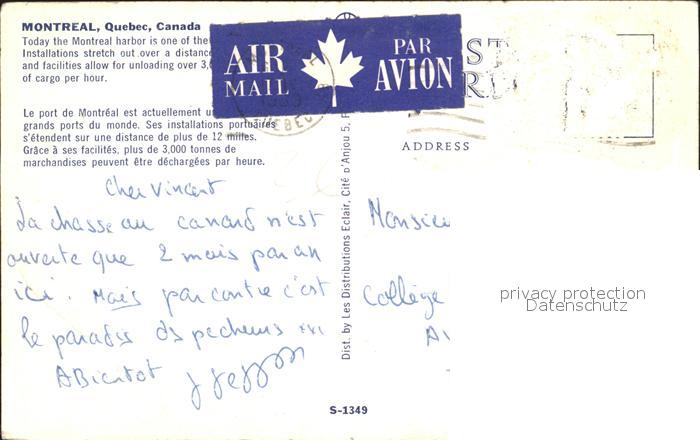 MONTREAL, Quebec, Canada
Today the Montreal harbor is one of the
Installations stretch out over a distance
and facilities allow for unloading over 3,
of cargo per hour.
Le port de Montréal est actuellement u
grands ports du monde. Ses installations portuaires
s'étendent sur une distance de plus de 12 milles.
Grâce à ses facilités, plus de 3,000 tonnes de
marchandises peuvent être déchargées par heure.
AIR MAIL
PAR AVION
QUEBEC
ST
RD
ADDRESS
Cher Vincent
La chasse au canard n'est
ouverte que 2 mois par an
ici. Mais par contre c'est
le paradis ds pecheurs
A Bientot
Dist. by Les Distributions Eclair, Cité d'Anjou 5, P
Monsieu
Collège
privacy protection
Datenschutz
S-1349